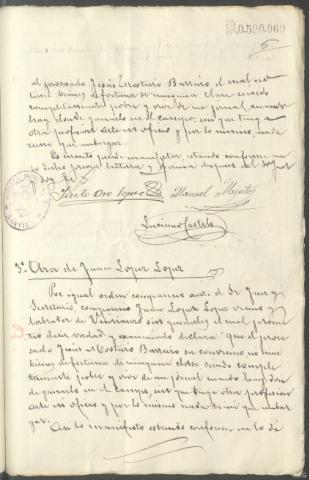 D.0.590.960
5
al procesado Jesús Mosteiro Barreiro el cual no
tiene bienes de fortuna de ninguna clase siendo
completamente pobre y vive de un jornal cuando
hay donde ganarlo en el campo, sin que tenga
otra profesion arte ni oficio y por lo mismo nada
tiene que embargar.
Es cuanto puede manifestar, estando conforme en
lo dicho previa lectura y firma despues de
y doy fe
Manuel
Luciano Castelo
3ª Otra de Juan Lopez Lopez
Por igual orden comparece ante el Sr Juez y
Secretario comparecio Juan Lopez Lopez vecino y
labrador de sin el cual prome
tio decir verdad y examinado declara: que el proce
sado Jesús Mosteiro Barreiro su convecino no tiene
bienes de fortuna de ninguna clase siendo comple
tamente pobre y vive de un jornal cuando hay don
de ganarlo en el campo, sin que tenga otra profesion
arte ni oficio y por lo mismo nada tiene que embar
gar.
Asi lo manifestó estando conforme en lo di